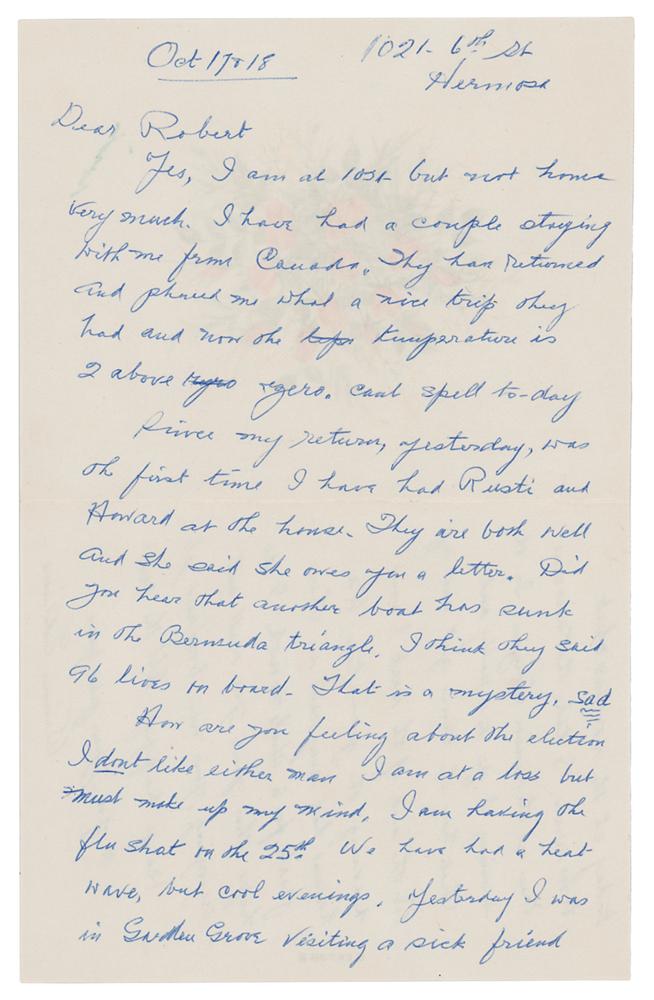 Oct 17 or 18
1021- 6th St
Hermosa
Dear Robert
Yes, I am at last but not home
very much. I have had a couple staying
with me from Canada. They have returned
and phoned me what a nice trip they
had and now the temperature is
2 above zero. cant spell to-day
Since my return, yesterday, was
the first time I have had Rusti and
Howard at the house. They are both well
and she said she owes you a letter. Did
you hear that another boat has sunk
in the Bermuda triangle. I think they said
96 lives on board - That is a mystery. sad
How are you feeling about the election
I dont like either man I am at a loss but
must make up my mind. I am having the
flu shot on the 25th We have had a heat
wave, but cool evenings. Yesterday I was
in Garden Grove visiting a sick friend